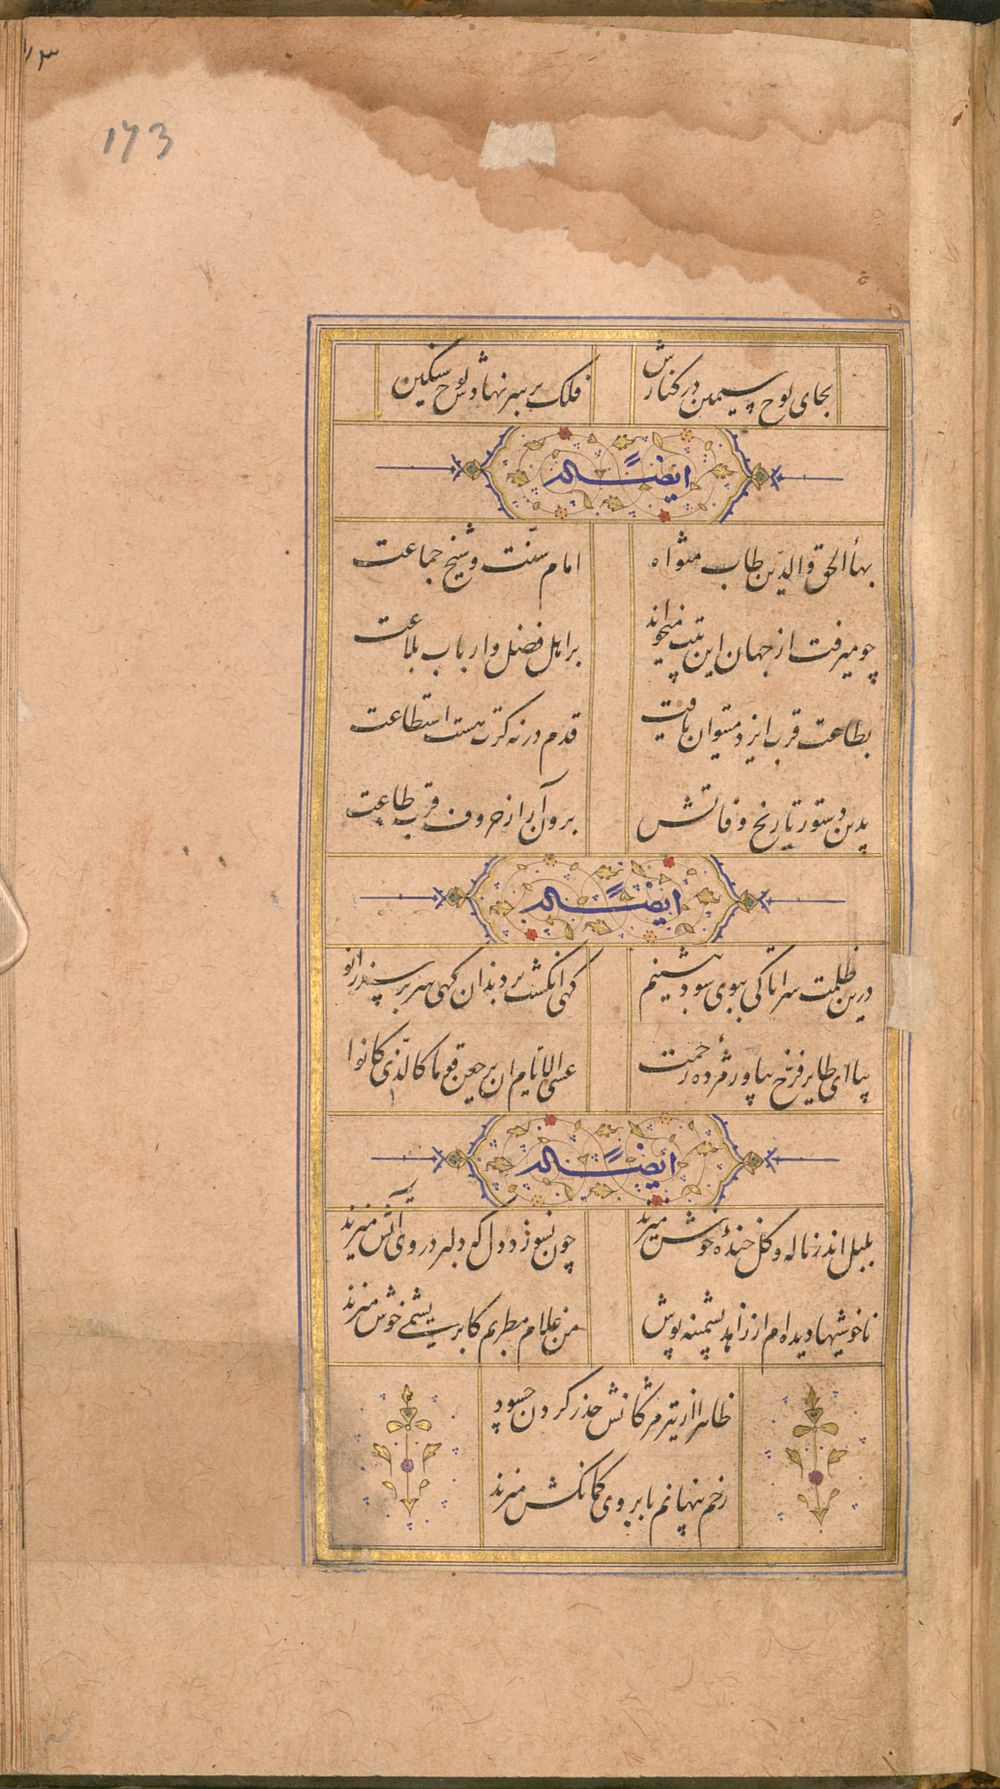 173
بجای لوح سیمین در کنارش	فلک بر سر نهادش لوح سنگین
ایضاً له
بهاء الحق والدین طاب مثواه	امام سنت و شیخ جماعت
چو میرفت از جهان این بیت میخواند	بر اهل فضل و ارباب بلاعت
بطاعت قرب ایزد میتوان یافت	قدم در نه گرت هست استطاعت
بدین دستور تاریخ وفاتش	برون آر از حروف قرب طاعت
ایضاً له
درین ظلمت سرا تا کی ببوی دوست بنشینم	کهی انگشت بر دندان کهی سر بر سر زانو
بیا ای طایر فرخ بیاور مژده رحمت	عسی الایام ان یرجعن قوما کالذی کانوا
ایضاً له
بلبل اندر ناله و گل خنده خوش میزند	چون نسوزد دل که دلبر در وی آتش میزند
ناخوشیها دیده ام از زاهد پشمینه پوش	من غلام مطربم کابریشمی خوش میزند
ظاهرا از تیر مژگانش حذر کردن چسود
زخم پنهانم بابروی کمانکش میزند